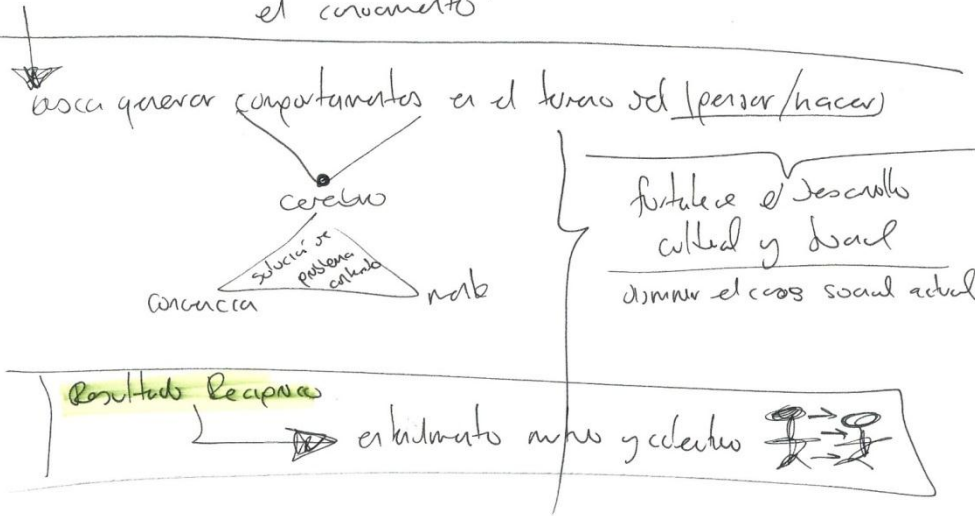 el conocimiento
busca generar comportamientos en el terreno del (pensar/hacer)
cerebro
solución de
problema
conciencia
fortalece el desarrollo
cultural y social
disminuir el caos social actual
Resultado Reciproco
entendimiento mutuo y colectivo